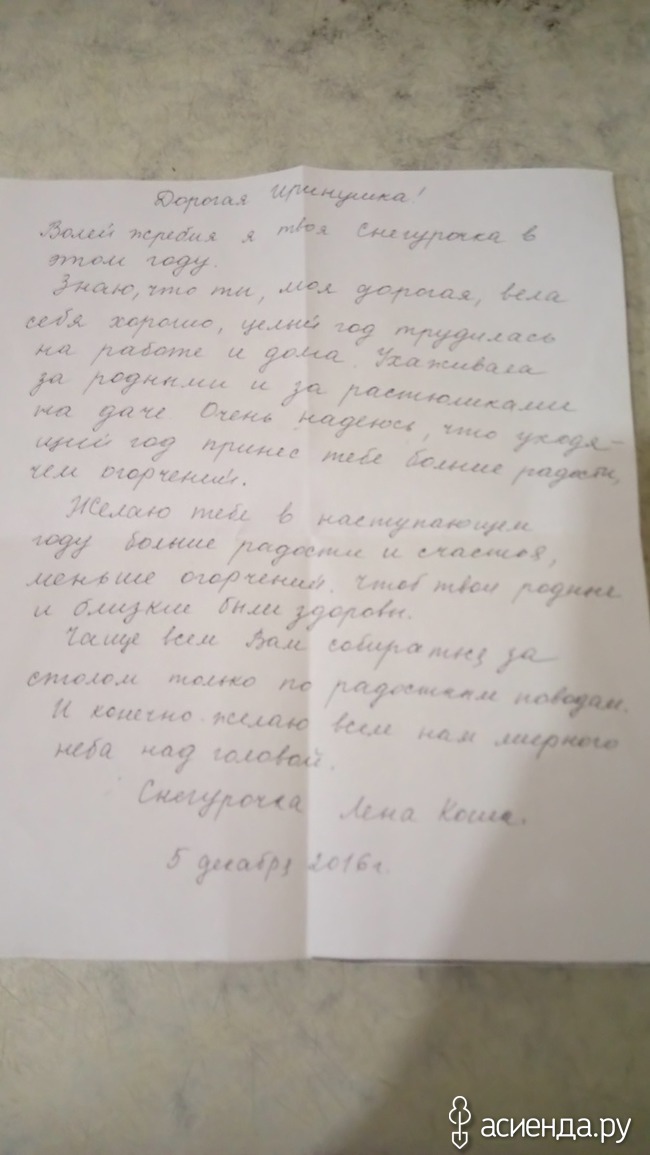 Дорогая Иринушка!
Волей жребия я твоя Снегурочка в
этом году.
Знаю, что ты, моя дорогая, вела
себя хорошо, целый год трудилась
на работе и дома. Ухаживала
за родными и за растюшками
на даче Очень надеюсь, что уходя-
щий год принес тебе больше радости,
чем огорчений.
Желаю тебе в наступающем
году больше радости и счастья,
меньше огорчений. Чтоб твои родные
и близкие были здоровы.
Чаще всем Вам собираться за
столом только по радостным поводам.
И конечно желаю всем нам мирного
неба над головой.
Снегурочка Лена
5 декабря 2016г.
асиенда.ру